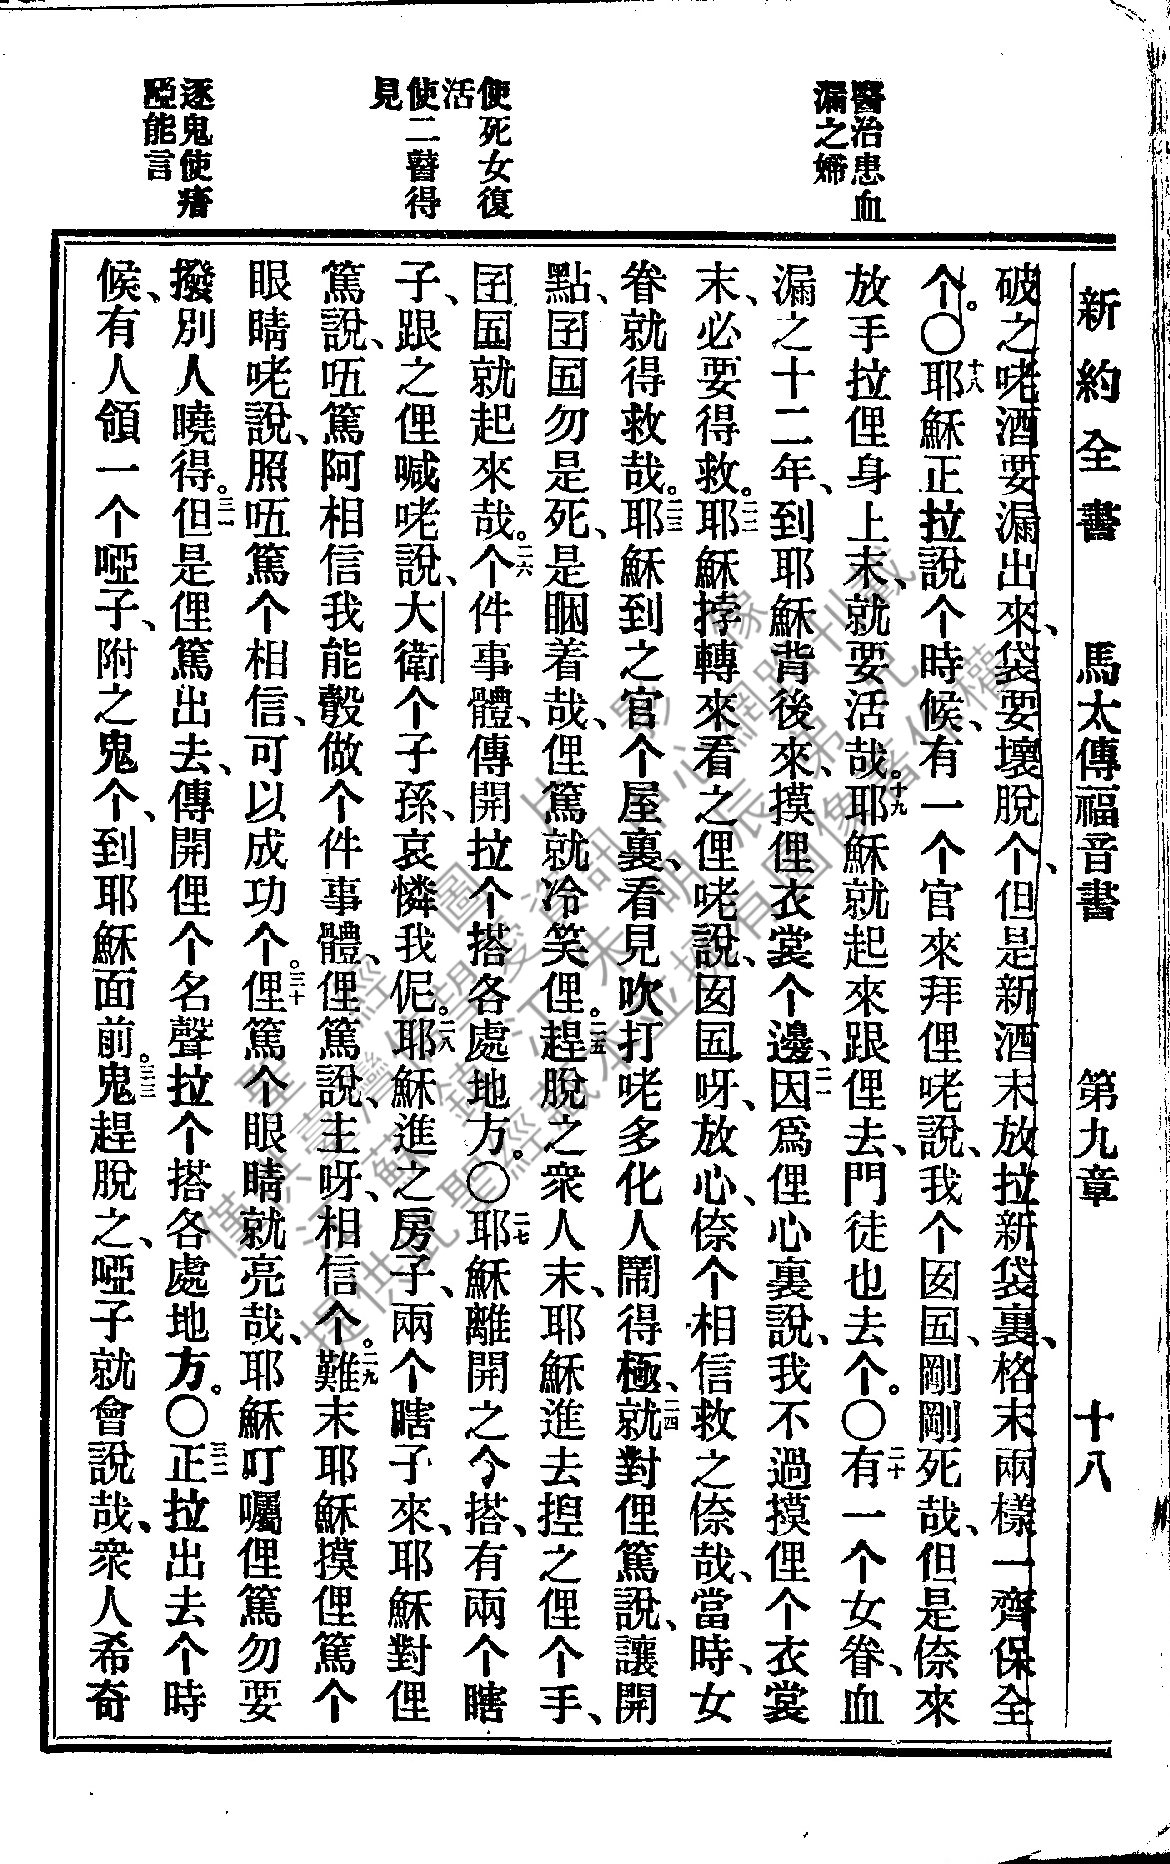 新約全書　馬太傳福音書　第九章　十八
破之咾酒要漏出來、袋要壞脫个、但是新酒末放拉新袋裏、格末兩樣一齊保全
个。〇十八耶穌正拉說个時候、有一个官來拜俚咾說、我个囡囯、剛剛死哉、但是倷來
放手拉俚身上末、就要活哉。十九耶穌就起來跟俚去、門徒也去个。〇二十有一个女眷、血
漏之十二年、到耶穌背後來、摸俚衣裳个邊、二一因爲俚心裏說、我不過摸俚个衣裳
末、必要得救。二二耶穌挬轉來看之俚咾說、囡囯呀、放心、倷个相信救之倷哉、當時、女
眷就得救哉。二三耶穌到之官个屋裏、看見吹打咾多化人鬧得極、二四就對俚篤說、讓開
點、囯勿是死、是睏着哉、俚篤就冷笑俚。二五趕脫之衆人末、耶穌進去揑之俚个手、
囯就起來哉。二六个件事體、傳開拉个搭各處地方。〇二七耶穌離開之个搭、有兩个瞎
子、跟之俚喊咾說、大衛个子孫、哀憐我伲。二八耶穌進之房子、兩个瞎子來、耶穌對俚
篤說、㕶篤阿相信我能彀做个件事體、俚篤說、主呀、相信个。二九難末耶穌摸俚篤个
眼睛咾說、照㕶篤个相信、可以成功个。三十俚篤个眼睛就亮哉、耶穌叮囑俚篤勿要
撥別人曉得。三一但是俚篤出去、傳開俚个名聲拉个搭各處地方。〇三二正拉出去个時
候、有人領一个啞子、附之鬼个、到耶穌面前。三三鬼趕脫之、啞子就會說哉、衆人希奇
醫治患血
漏之婦
使死女復
活
使二瞽得
見
逐鬼使瘖
啞能言